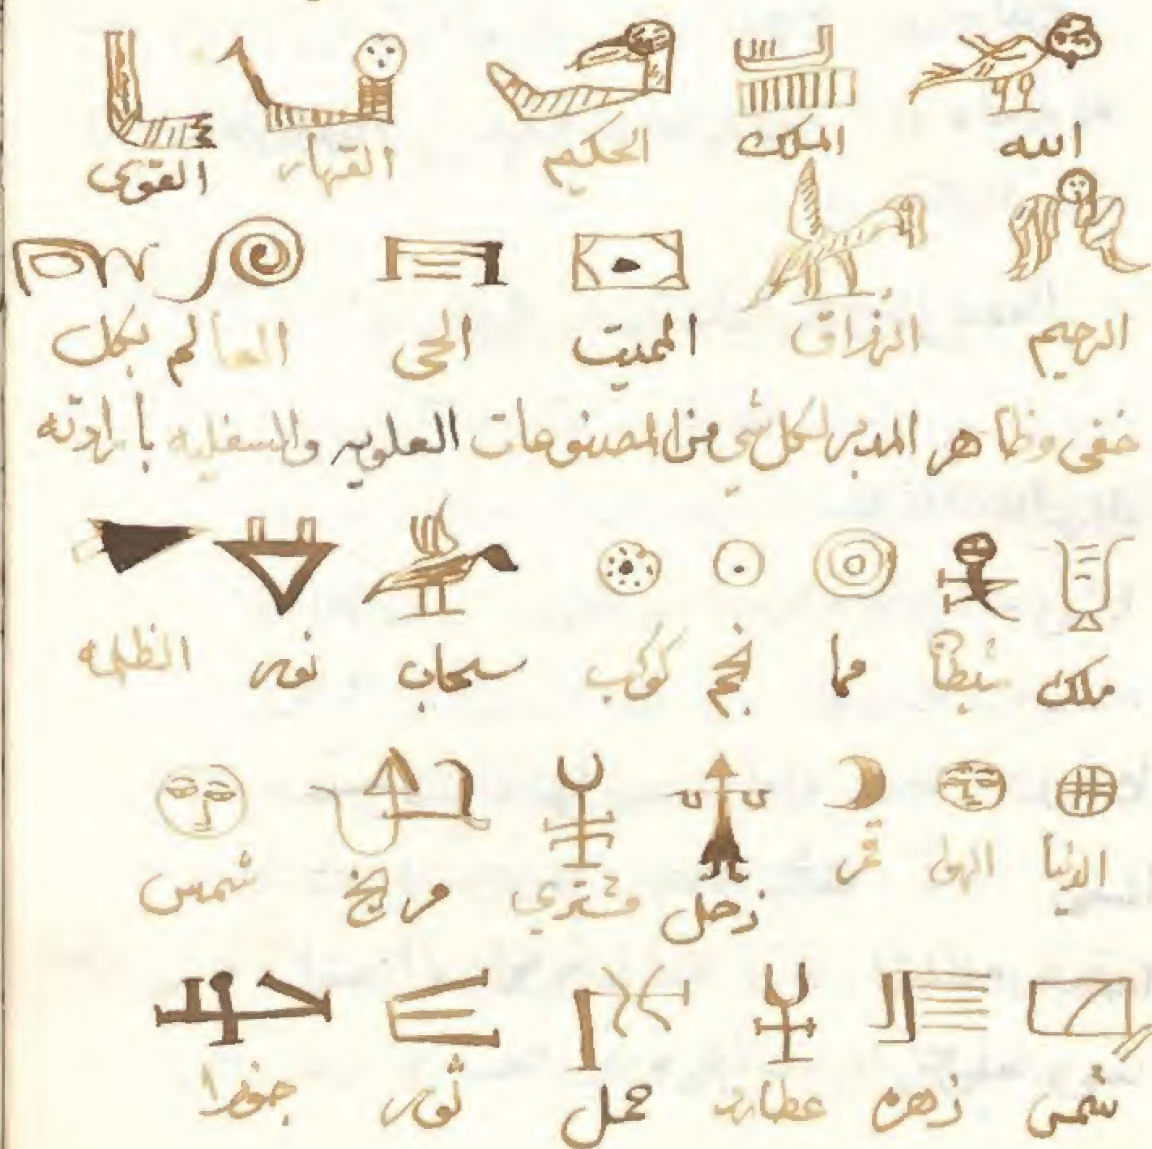 الله الملك الحكيم القهار القوى
الرحيم الرزاق المميت الحى العالم بكل
خفى وظاهر المدبر لكل شي من المصنوعات العلويه والسفليه بارادته
ملك شيطا سما نجم كوكب سحاب نور الظلمه
الدنيا الهوا قمر زحل مشتري مريخ شمس
شمس زهره عطارد حمل ثور جوزا